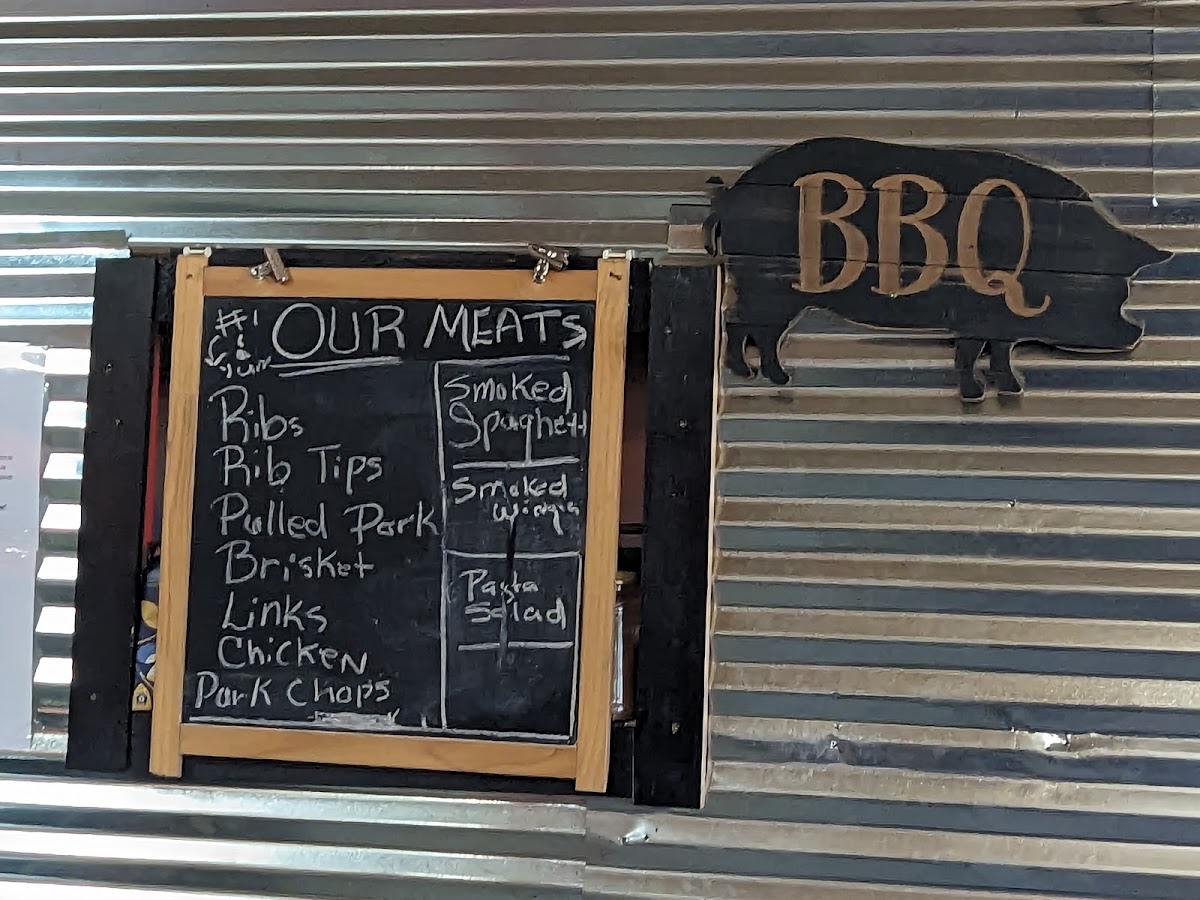 #1
OUR MEATS
Ribs
Rib Tips
Pulled Pork
Brisket
Links
Chicken
Pork Chops
Smoked
Spaghetti
Smoked
Wings
Pasta
Salad
BBQ